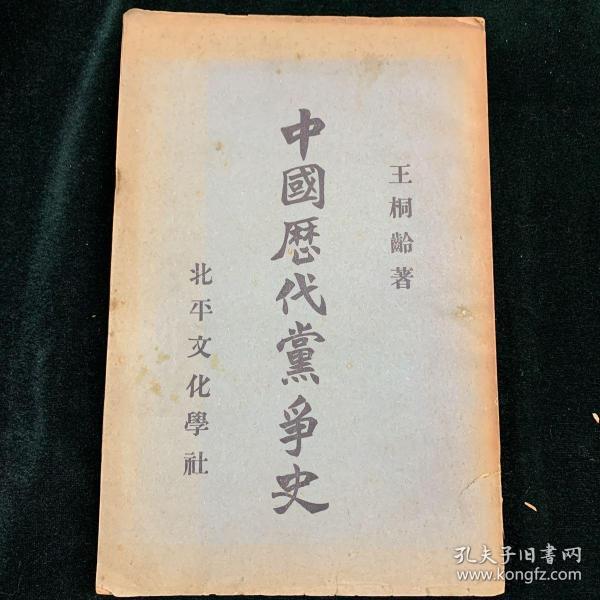 王桐齡著
中國歷代黨爭史
北平文化學社
孔夫子旧書网
www.kongfz.com